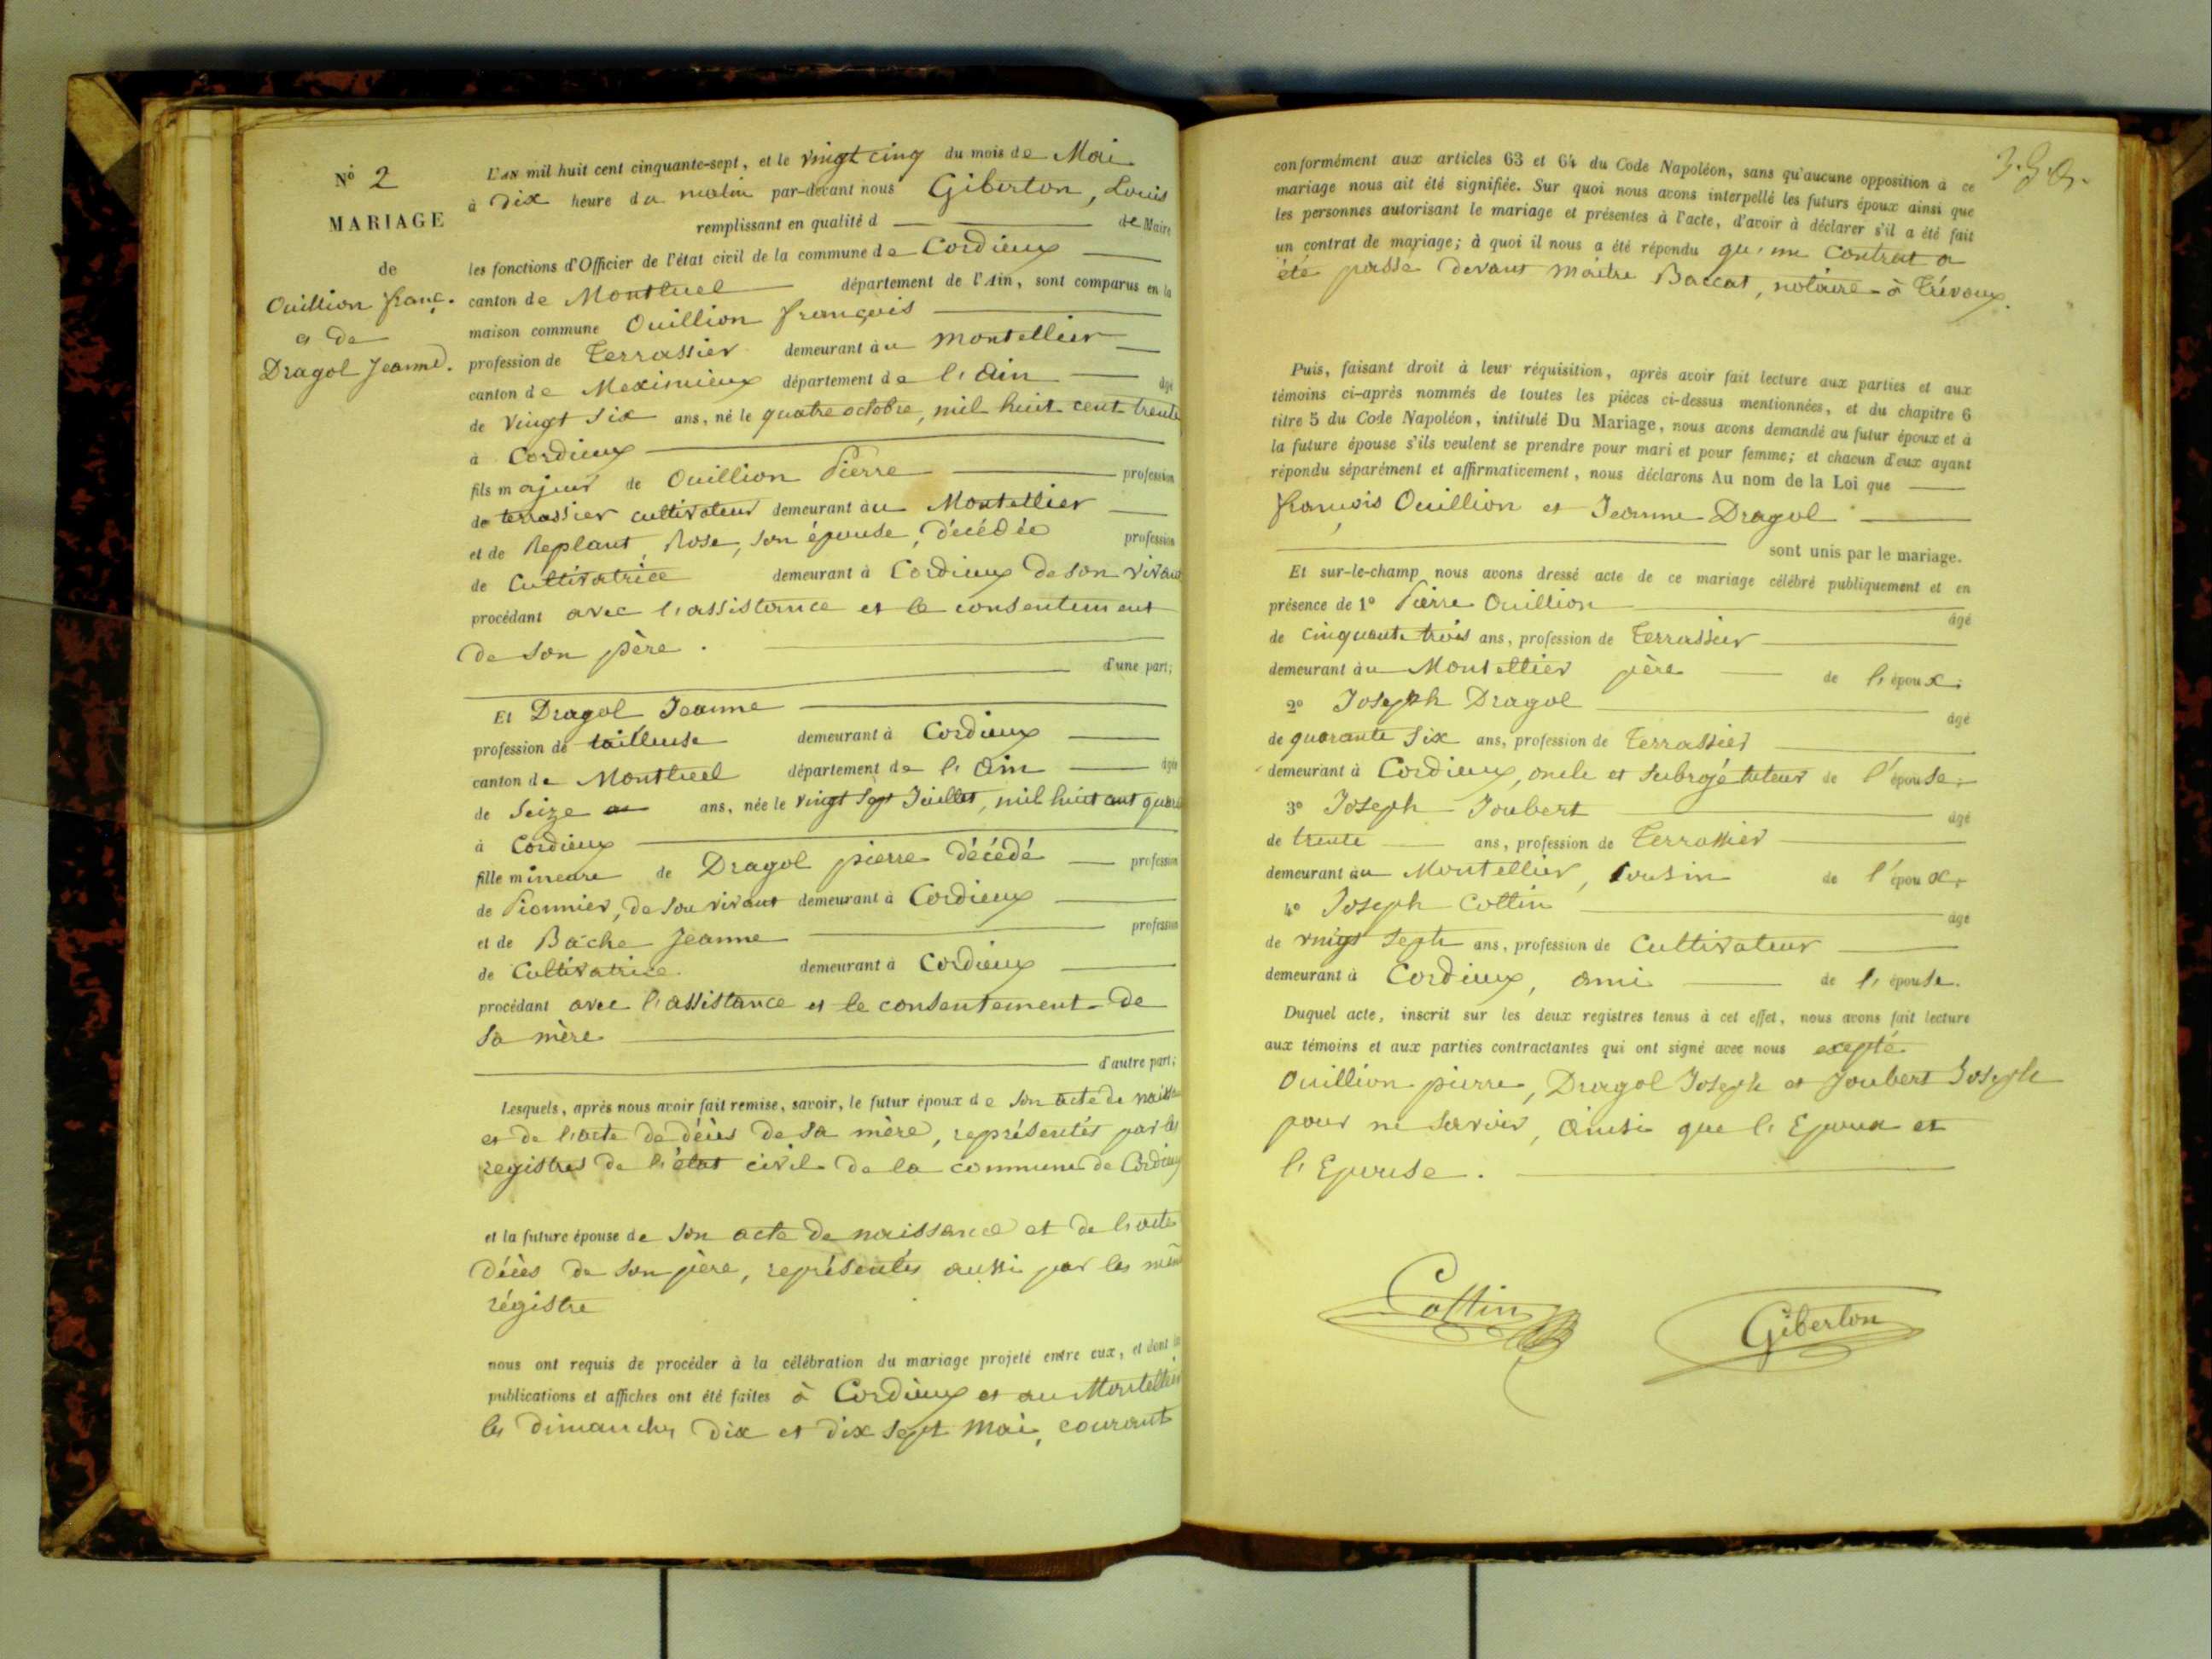 N° 2
MARIAGE
de
Ouillion franç.
et de
Dragol Jeanne.
L'AN mil huit cent cinquante-sept, et le vingt cinq du mois de Mai
à dix heure du matin par-devant nous Giberton, Louis
remplissant en qualité d — de Maire
les fonctions d'Officier de l'état civil de la commune de Cordieux
canton de Montluel département de l'Ain, sont comparus en la
maison commune Ouillion françois
profession de Terrassier demeurant au Montellier
canton de Meximieux département de l'Ain âgé
de Vingt Six ans, né le quatre octobre, mil huit cent trente
à Cordieux
fils majeur de Ouillion Pierre profession
de terrassier cultivateur demeurant au Montellier
et de Replant, Rose, son épouse, décédée profession
de Cultivatrice demeurant à Cordieux de son vivant
procédant avec l'assistance et le consentement
de son père.
d'une part;
Et Dragol Jeanne
profession de tailleuse demeurant à Cordieux
canton de Montluel département de l'Ain âgée
de Seize ans, née le vingt Sept Juillet, mil huit cent quara
à Cordieux
fille mineure de Dragol pierre décédé profession
de Pionnier, de son vivant demeurant à Cordieux
et de Bâche Jeanne profession
de Cultivatrice demeurant à Cordieux
procédant avec l'assistance et le consentement de
sa mère
d'autre part;
Lesquels, après nous avoir fait remise, savoir, le futur époux de son acte de naissa
et de l'acte de décès de sa mère, représentés par les
registres de l'état civil de la commune de Cordieux
et la future épouse de son acte de naissance et de l'acte
décès de son père, représentés aussi par les mêm
régistre
nous ont requis de procéder à la célébration du mariage projeté entre eux, et dont les
publications et affiches ont été faites à Cordieux et au Montellier
les dimanches dix et dix sept Mai, courant
conformément aux articles 63 et 64 du Code Napoléon, sans qu'aucune opposition à ce
mariage nous ait été signifiée. Sur quoi nous avons interpellé les futurs époux ainsi que
les personnes autorisant le mariage et présentes à l'acte, d'avoir à déclarer s'il a été fait
un contrat de mariage; à quoi il nous a été répondu qu'un Contrat a
été passé devant maitre Baccat, notaire à Trévoux.
Puis, faisant droit à leur réquisition, après avoir fait lecture aux parties et aux
témoins ci-après nommés de toutes les pièces ci-dessus mentionnées, et du chapitre 6
titre 5 du Code Napoléon, intitulé Du Mariage, nous avons demandé au futur époux et à
la future épouse s'ils veulent se prendre pour mari et pour femme; et chacun d'eux ayant
répondu séparément et affirmativement, nous déclarons Au nom de la Loi que
françois Ouillion et Jeanne Dragol
sont unis par le mariage.
Et sur-le-champ nous avons dressé acte de ce mariage célébré publiquement et en
présence de 1° Pierre Ouillion âgé
de cinquante trois ans, profession de Terrassier
demeurant au Montellier père de l'époux;
2° Joseph Dragol âgé
de quarante Six ans, profession de Terrassier
demeurant à Cordieux, oncle et subrogé tuteur de l'épouse;
3° Joseph Joubert âgé
de trente ans, profession de Terrassier
demeurant au Montellier, Cousin de l'époux;
4° Joseph Cottin âgé
de vingt Septe ans, profession de Cultivateur
demeurant à Cordieux, ami de l'épouse.
Duquel acte, inscrit sur les deux registres tenus à cet effet, nous avons fait lecture
aux témoins et aux parties contractantes qui ont signé avec nous excepté
Ouillion pierre, Dragol Joseph et Joubert Joseph
pour ne savoir, ainsi que l'Epoux et
l'Epouse.
Cottin
Giberton